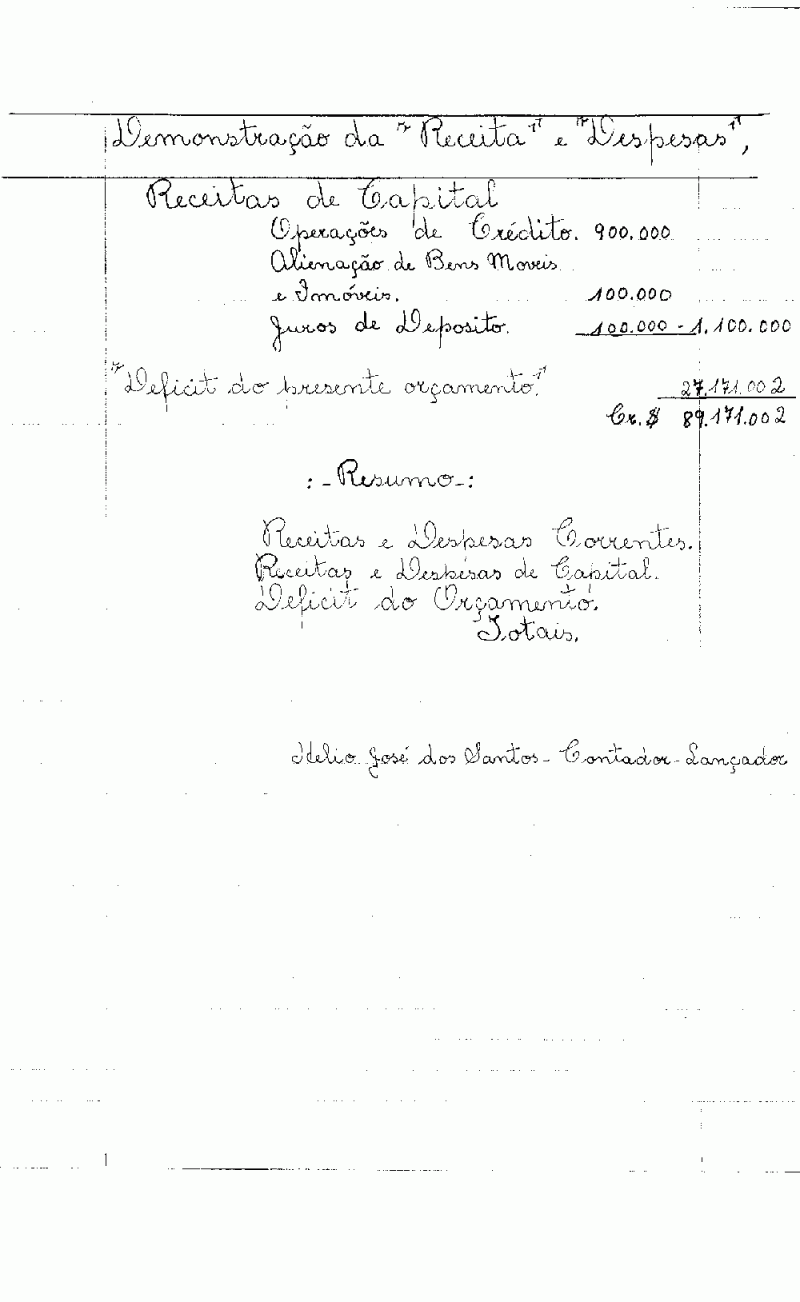 Demonstração da "Receita" e "Despesas",
Receitas de Capital
Operações de Crédito. 900.000
Alienação de Bens Moveis
e Imóveis. 100.000
Juros de Deposito. 100.000 - 1.100.000
"Deficit do presente orçamento." 27.171.002
Cr.$ 89.171.002
:-Resumo-:
Receitas e Despesas Correntes.
Receitas e Despesas de Capital.
Deficit do Orçamento.
Totais.
Helio José dos Santos - Contador - Lançador